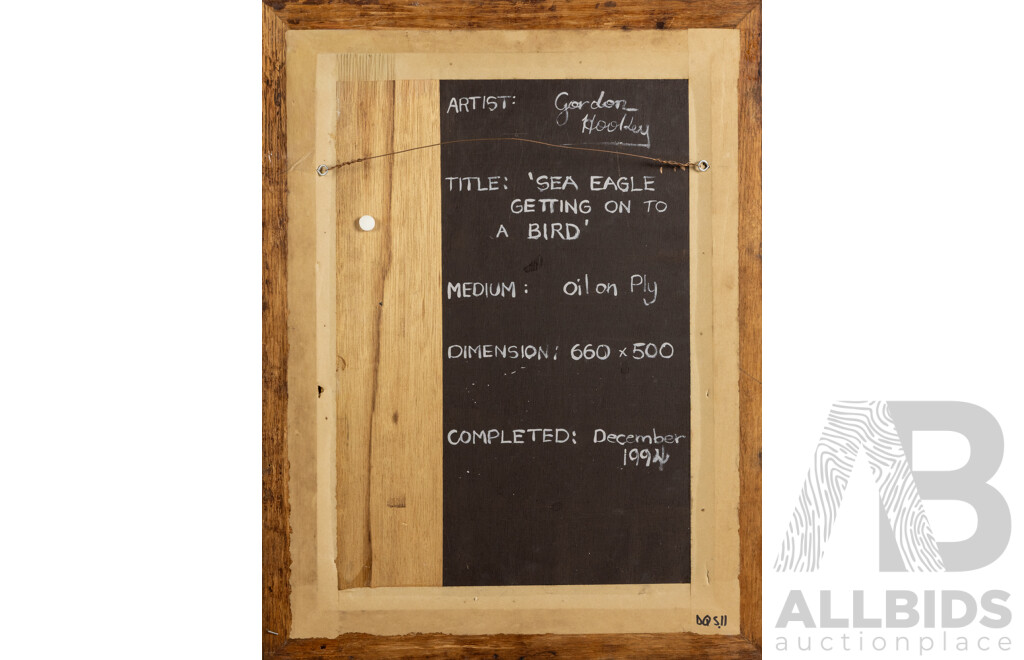 ARTIST: Gordon
Hookey
TITLE: 'SEA EAGLE
GETTING ON TO
A BIRD'
MEDIUM: Oil on Ply
DIMENSION: 660 x 500
COMPLETED: December
1994
DQS11
AB
ALLBIDS
auctionplace